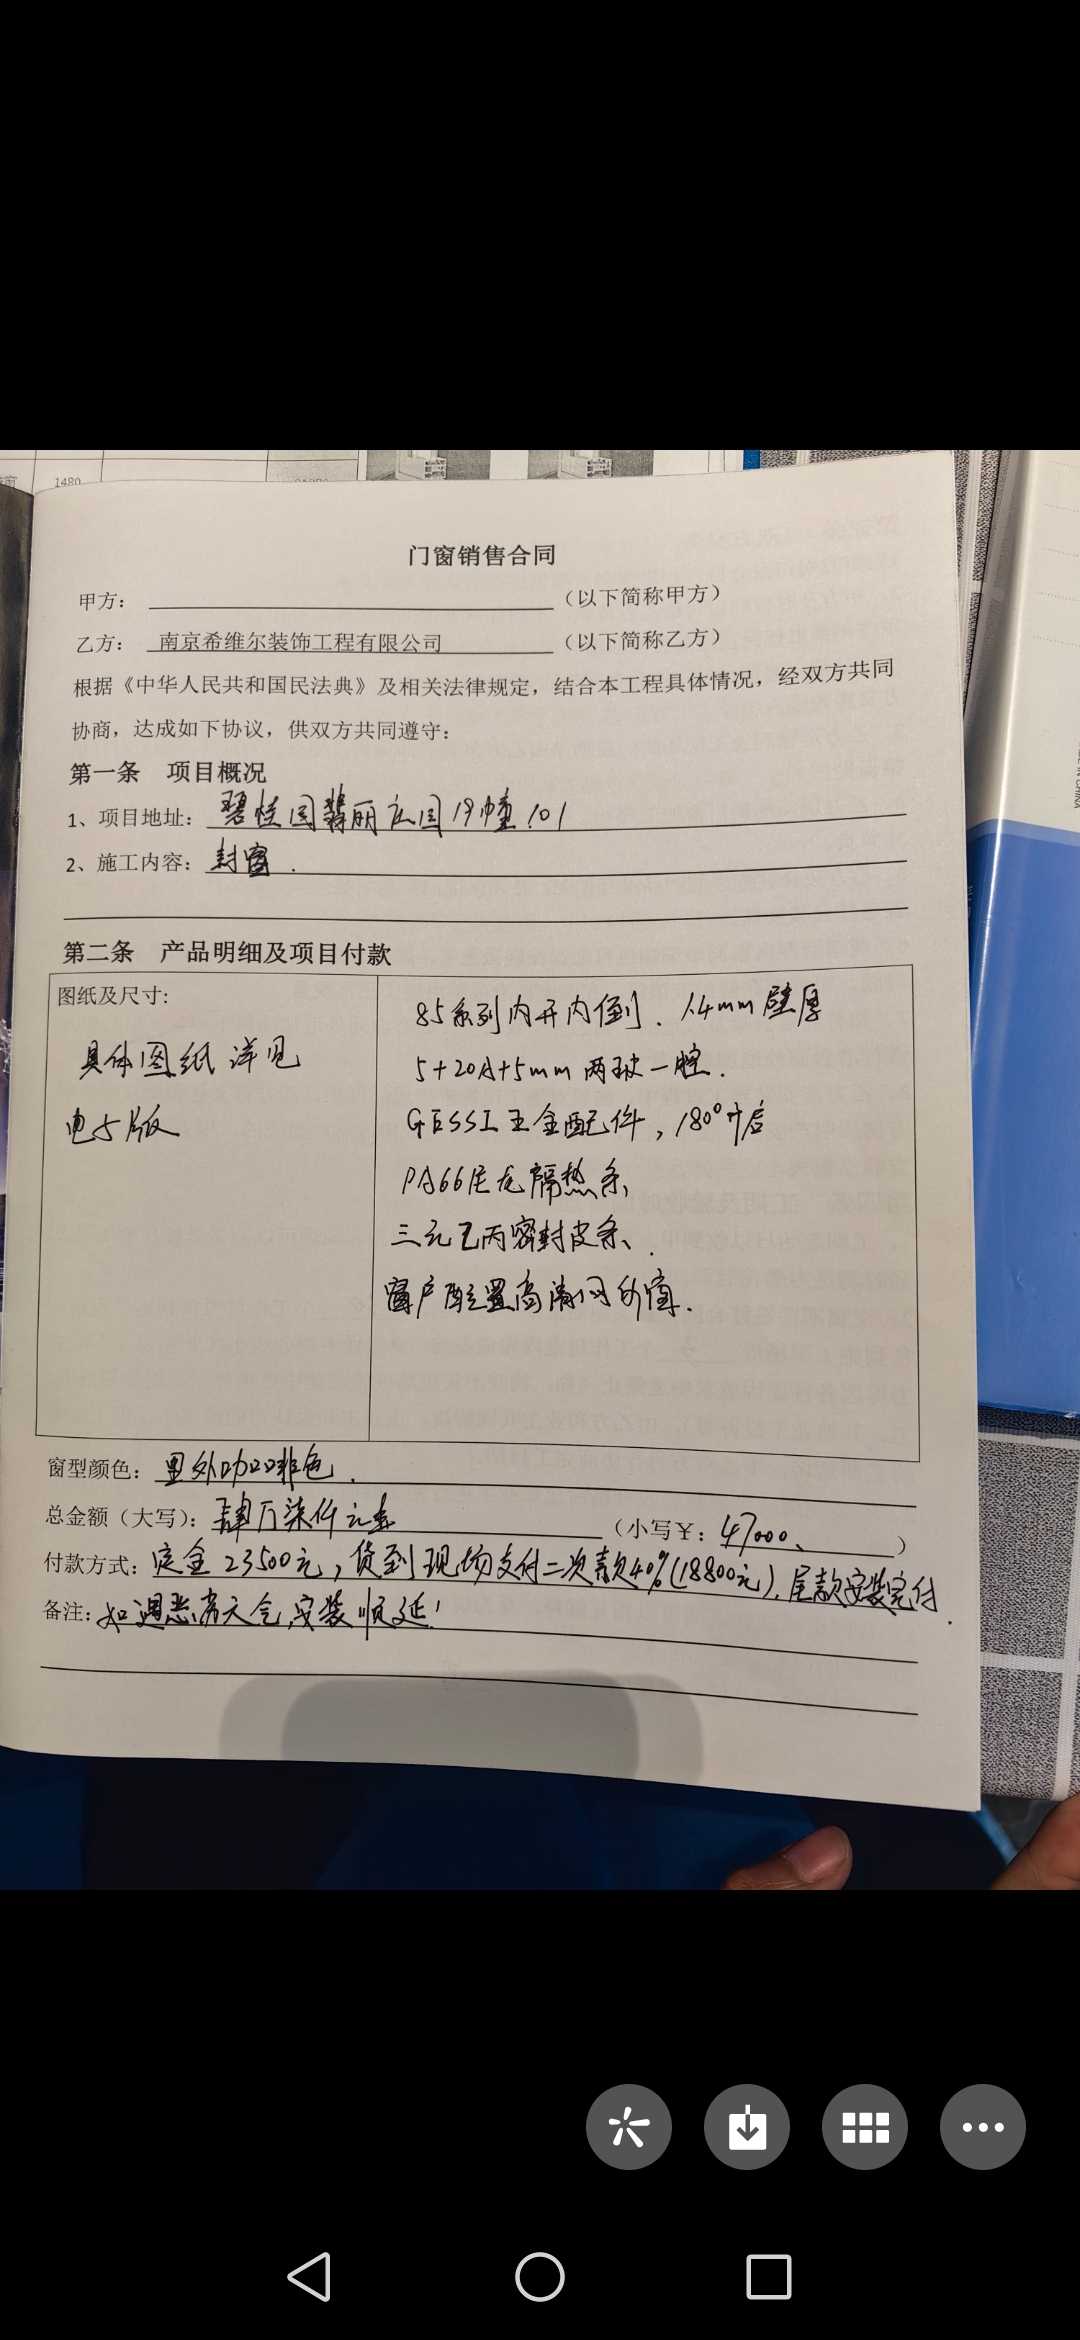 1480
门窗销售合同
甲方：（以下简称甲方）
乙方：南京希维尔装饰工程有限公司（以下简称乙方）
根据《中华人民共和国民法典》及相关法律规定，结合本工程具体情况，经双方共同
协商，达成如下协议，供双方共同遵守：
第一条 项目概况
1、项目地址：碧桂园翡丽庄园19幢101
2、施工内容：封窗.
第二条 产品明细及项目付款
图纸及尺寸:
具体图纸详见
电子版
85系列内开内倒、1.4mm壁厚
5+20A+5mm两玻一腔.
GESSI五金配件，180°开启
PA66尼龙隔热条
三元乙丙密封皮条、
窗户配置高清网纱窗.
窗型颜色：里外咖啡色.
总金额（大写）：肆万柒仟元整（小写￥：47000、）
付款方式：定金23500元，货到现场支付二次款40%(18800元).尾款安装完付.
备注：如遇恶劣天气，安装顺延！